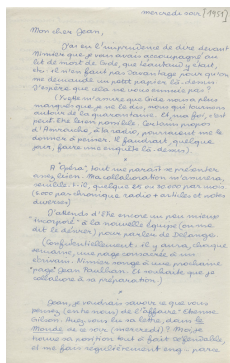 mercredi soir [1951]
Mon cher Jean,
J'ai eu l'imprudence de dire devant
Nimier que je vous avais accompagné au
lit de mort de Gide, que Léautaud y était
etc: il n'en faut pas davantage pour qu'on
me demande un petit papier là-dessus.
J'espère que cela ne vous ennuie pas?
que Gide nous a plus
marqué que je ne le dis, nous qui tournons
autour de la quarantaine. Et, ma foi, c'est
peut-être bien possible. Certains propos
d'Amrouche, à la radio, pourraient me le
donner à penser. Il faudrait, quelque
jour, faire une enquête là-dessus.)
*
A "Opéra", tout me paraît se présenter
assez bien. Ma collaboration m'assurera,
semble-t-il, quelque 25 ou 30 000 par mois
(6000 par chronique radio + articles et notes
diverses)
J'attends d'être encore un peu mieux
"incorporé" à la nouvelle équipe (ou me
dit le désirer) pour parler de Delange.
(Confidentiellement: il y aura, chaque
semaine, une page consacrée à un
écrivain. Nimier songe à une prochaine
"page" Jean Paulhan. Et souhaite que je
collabore à sa préparation.)
*
Jean, je voudrais savoir ce que vous
pensez (entre nous) de l'"affaire" Etiemble
Avez-vous lu sa lettre, dans le
Monde de ce soir (mercredi)? Moi, je
trouve sa position tout à fait
et me fais régulièrement eng. parce